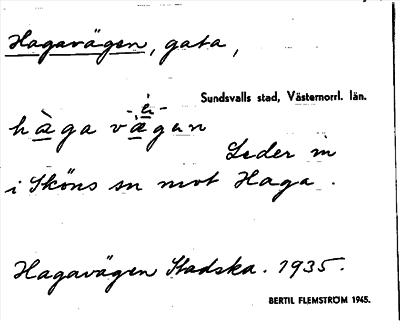 Hagavägen, gata,
Sundsvalls stad, Västernorrl. län.
-è-
hàga vägen
Leder in
i Sköns sn mot Haga.
Hagavägen Stadska. 1935.
BERTIL FLEMSTRÖM 1945.